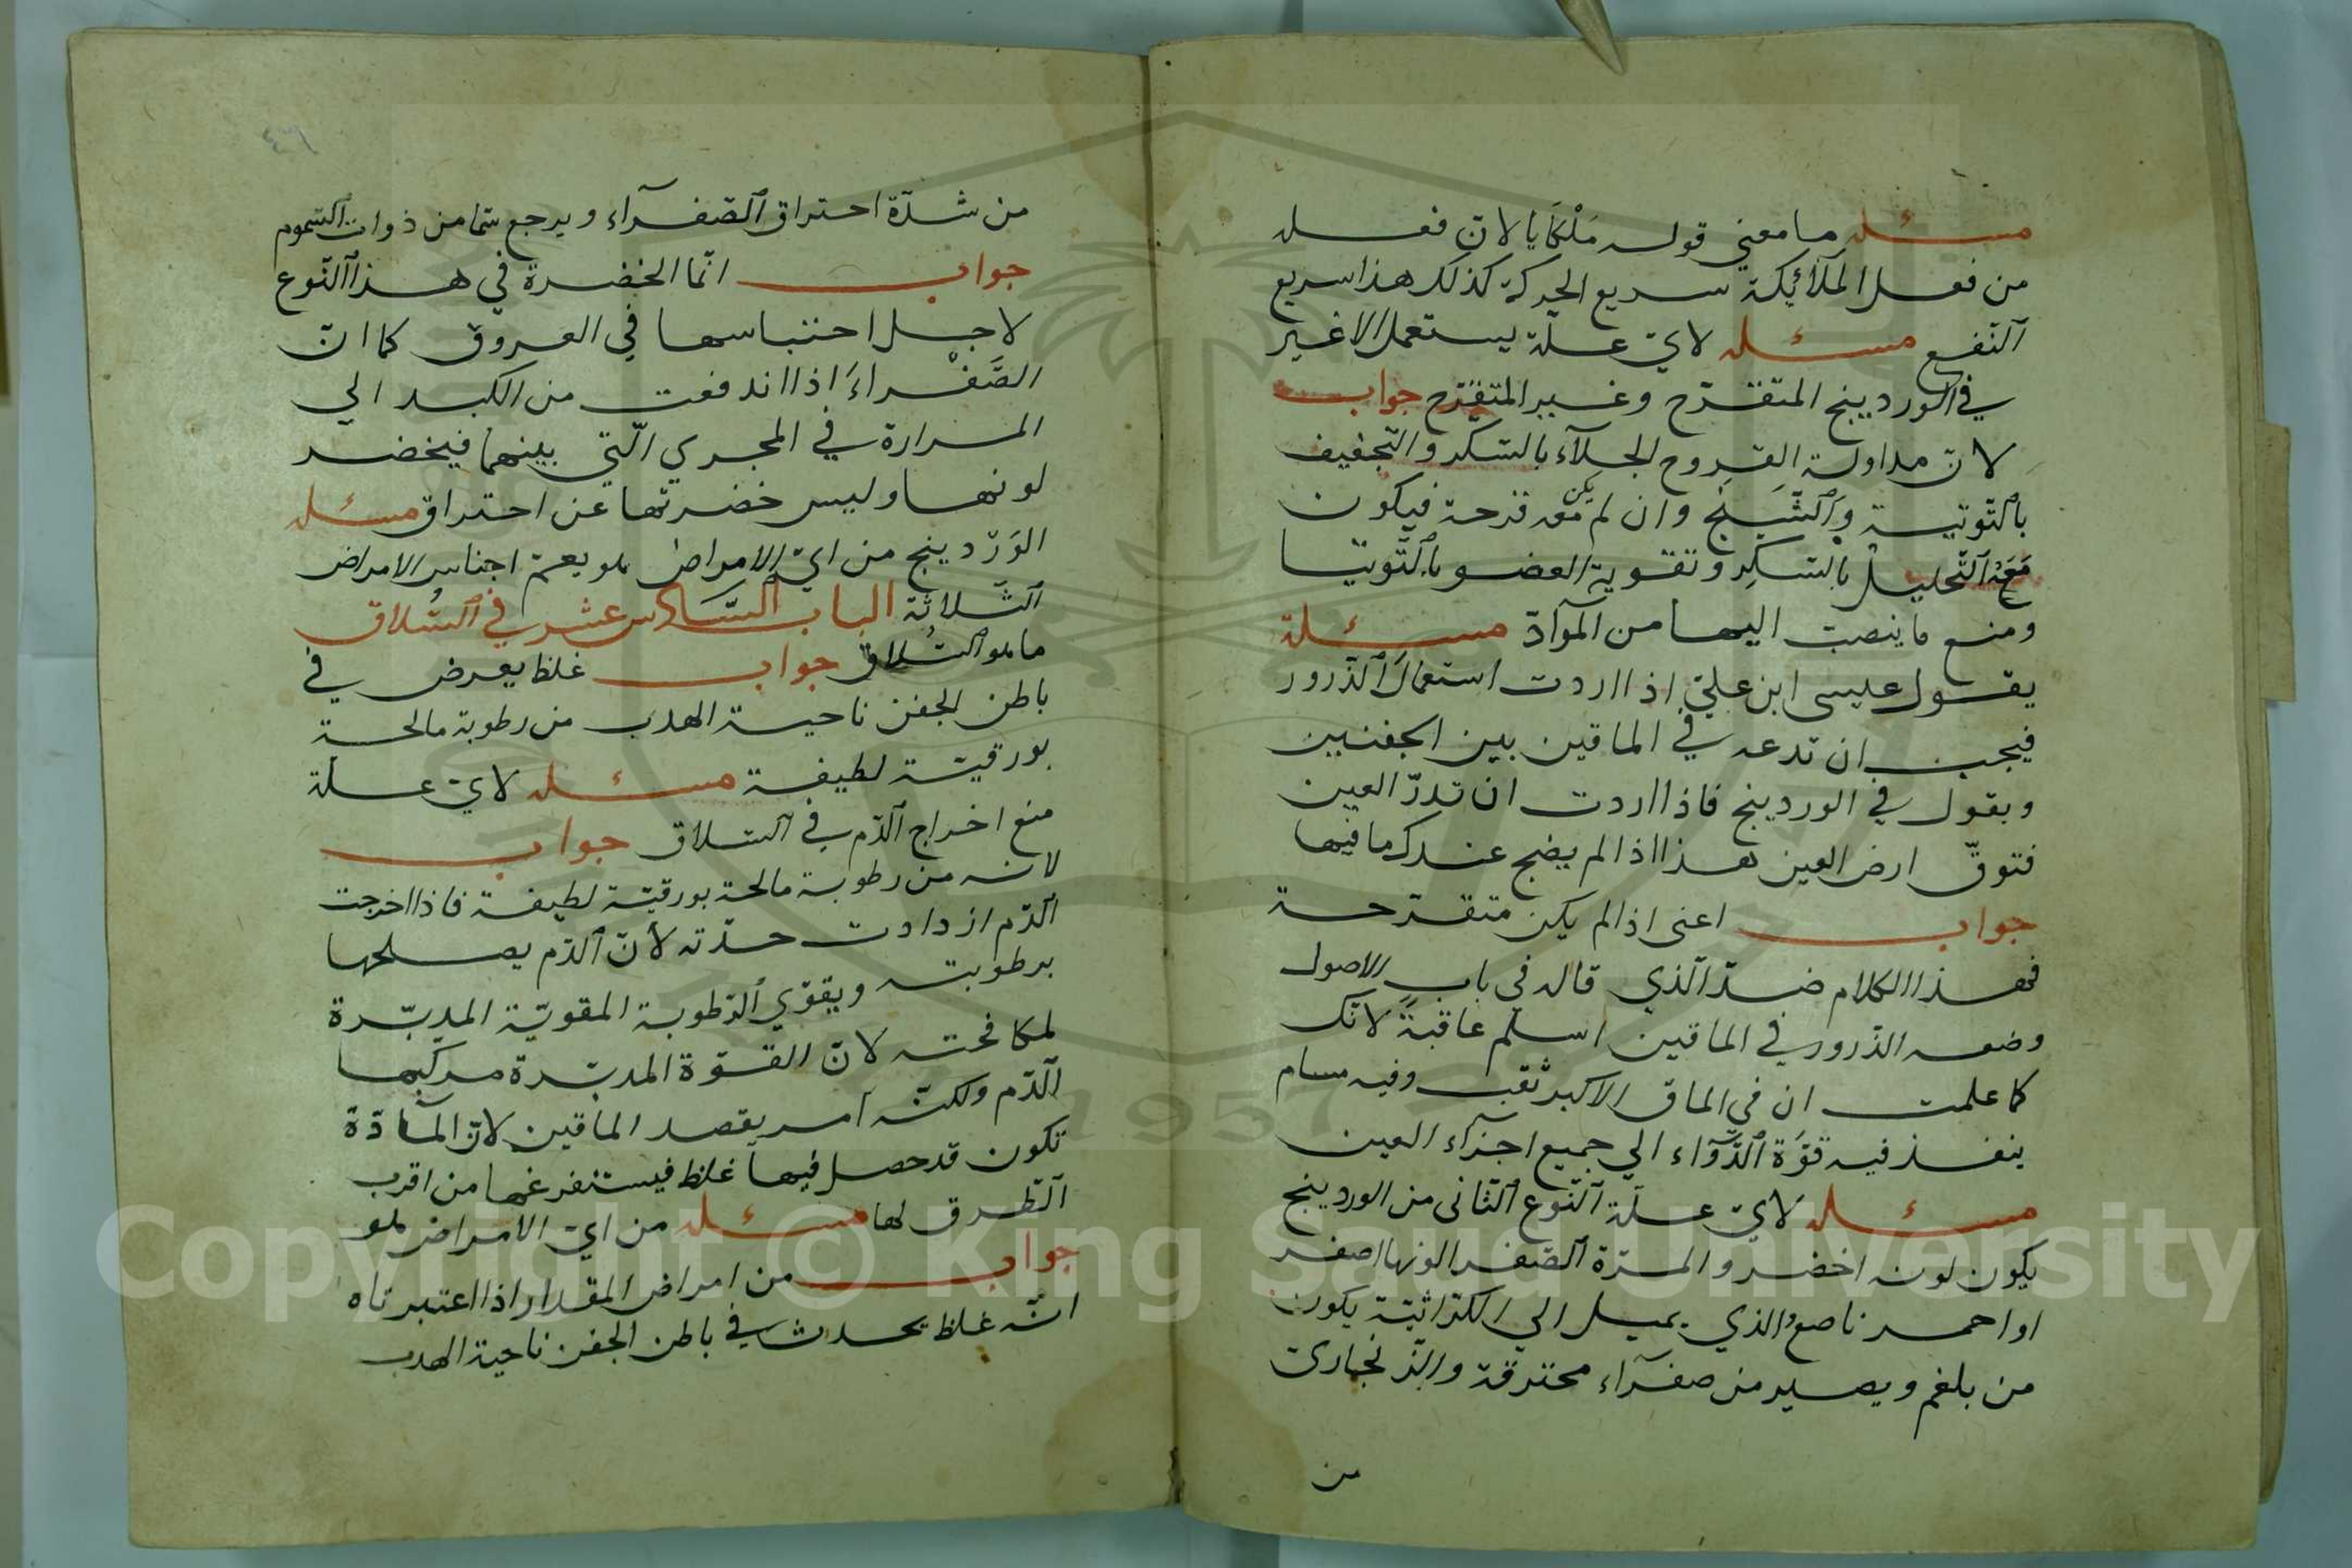 مسئله ما معني قوله مَلْكَايا لانّ فعله
من فعل الملآئكة سريع الحركة كذلك هذا سريع
آلنّفع مسئله لايّ علّة يستعمل الاغبر
في الوردينج المتقرّح وغير المتقرّح جواب
لانّ مداولة القروح لجلآء بالسّكّر والتّجفيف
بالتّوتية وَالشّيح وان لم يكن معه قرحة فيكون
مَعَهُ آلتّحليل بالسّكر وتقوية العضو بالتّوتيا
ومنع ما ينصبّ اليها من الموآدّ مسئلة
يقول عيسى ابن عليّ اذا اردت استعمال الذّرور
فيجب ان تدعه في الماقين بين الجفنين
ويقول في الوردينج فاذا اردت ان تذرّ العين
فتوقّ ارض العين هذا اذا لم يضج عندك ما فيها
جواب اعنى اذا لم يكن متقرّحة
فهذا الكلام ضدّ الّذي قاله في باب الاصول
وضعه الذّرور في الماقين اسلم عاقبةً لانّك
كما علمت ان في الماق الاكبر ثقب وفيه مسام
ينفذ فيه قوّة الدّوآء الي جميع اجزآء العين
مسئله لايّ علّة آلنّوع آلثّانى من الوردينج
يكون لونه اخضر والمرّة الصّفرا لونها اصفر
او احمر ناصع والذي يميل الي الكرّاثيّة يكون
من بلغم ويصير من صفرآء محترقة والزّنجاريّ
من
من شدّة احتراق الصّفرآء ويرجع سمّا من ذوات السّموم
جواب انّما الخضرة في هذا آلنّوع
لاجل احتباسها في العروق كما انّ
الصَّفْراءَ اذا اندفعت من الكبد الي
المرارة في المجري الّتي بينهما فيخضر
لونها وليس خضرتها عن احتراق مسئله
الوَرْدينج من ايّ الامراض هو يعمّ اجناس الامراض
آلثّلاثة الباب السّادس عشر في السُّلاق
ما هو السُّلاق جواب غلظ يعرض في
باطن الجفن ناحية الهدب من رطوبة مالحة
بورقيّة لطيفة مسئله لايّ علّة
منع اخراج الدّم في السّلاق جواب
لانه من رطوبة مالحة بورقيّة لطيفة فاذا اخرجت
الدّم ازدادت حدّته لأنّ الدّم يصلحها
برطوبته ويقوّي الرّطوبة المقويّة المدبّرة
لمكافحته لانّ القوّة المدبّرة مركبها
الدّم ولكنّه امر بفصد الماقين لانّ المآدّة
تكون قد حصل فيها غلظ فيستفرغها من اقرب
الطّرق لها مسئله من ايّ الامراض هو
جواب من امراض المقدار اذا اعتبرناه
انّه غلظ يحدث في باطن الجفن ناحية الهدب
Copyright © King Saud University
1957